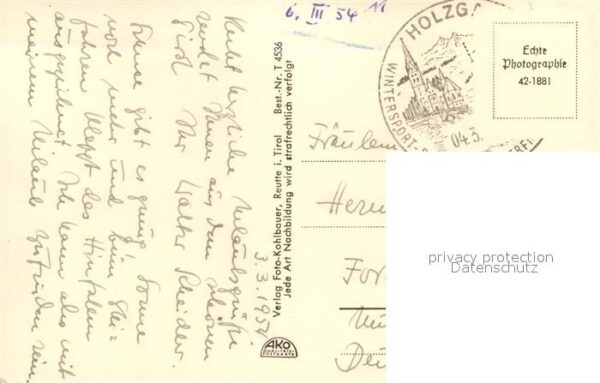 6. III 54
HOLZG
WINTERSPORT-
04.3.
Echte
Photographie
42-1881
Recht herzliche Urlaubsgrüße
sendet Ihnen aus dem schönen
Tirol Ihr Walter
3.3.1954
Schnee gibt es genug, Sonne
noch mehr und beim Ski=
fahren klappt das Hinfallen
ausgezeichnet. Ich kann also mit
meinem Urlaub zufrieden sein.
Verlag Foto-Kohlbauer, Reutte i. Tirol Best.-Nr. T 4536
Jede Art Nachbildung wird strafrechtlich verfolgt
AKO
POSTKARTE
Fräulein
privacy protection
Datenschutz